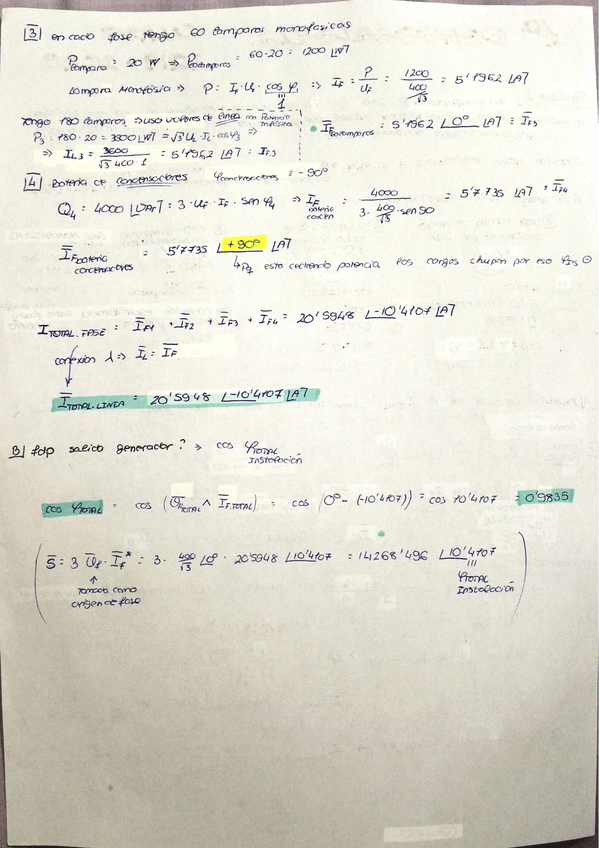 3 en cada fase tengo 60 lamparas monofasicas
P lampara = 20 W ⇒ P 60lamparas = 60·20 = 1200 [W]
lampara Monofásica ⇒ P = I_F · U_F · cos φ ⇒ I_F = P/U_F = 1200/(400/√3) = 5'1962 [A]
1
Tengo 180 lamparas ⇒ uso valores de linea con Potencia trifásica
P3 = 180·20 = 3600 [W] = √3 U_L · I_L · cos φ3 ⇒
Ī_F 60lamparas = 5'1962 ∠0° [A] ≡ Ī_F3
⇒ I_L3 = 3600/(√3·400·1) = 5'1962 [A] = I_F3
4 Bateria de condensadores φ condensadores = -90°
Q4 = 4000 [VAr] = 3 · U_F · I_F · sen φ4 ⇒ I_F bateria conden = 4000/(3 · 400/√3 · sen 90) = 5'7735 [A] ≡ Ī_F4
Ī_F bateria condensadores = 5'7735 ∠+90° [A]
↳ Pq esta cediendo potencia las cargas chupan por eso φ es ⊖
I TOTAL.FASE = Ī_F1 + Ī_F2 + Ī_F3 + Ī_F4 = 20'5948 ∠-10'4107 [A]
conexion λ ⇒ Ī_L = Ī_F
Ī TOTAL.LINEA = 20'5948 ∠-10'4107 [A]
B) fdp salida generador? ⇒ cos φ TOTAL Instalación
cos φ TOTAL = cos (Ū_F TOTAL ^ Ī_F.TOTAL) = cos (0° - (-10'4107)) = cos 10'4107 = 0'9835
S̄ = 3 Ū_f · Ī_f* = 3 · 400/√3 ∠0° · 20'5948 ∠10'4107 = 14268'496 ∠10'4107
↑
Tomada como
origen de fase
φ TOTAL
Instalación